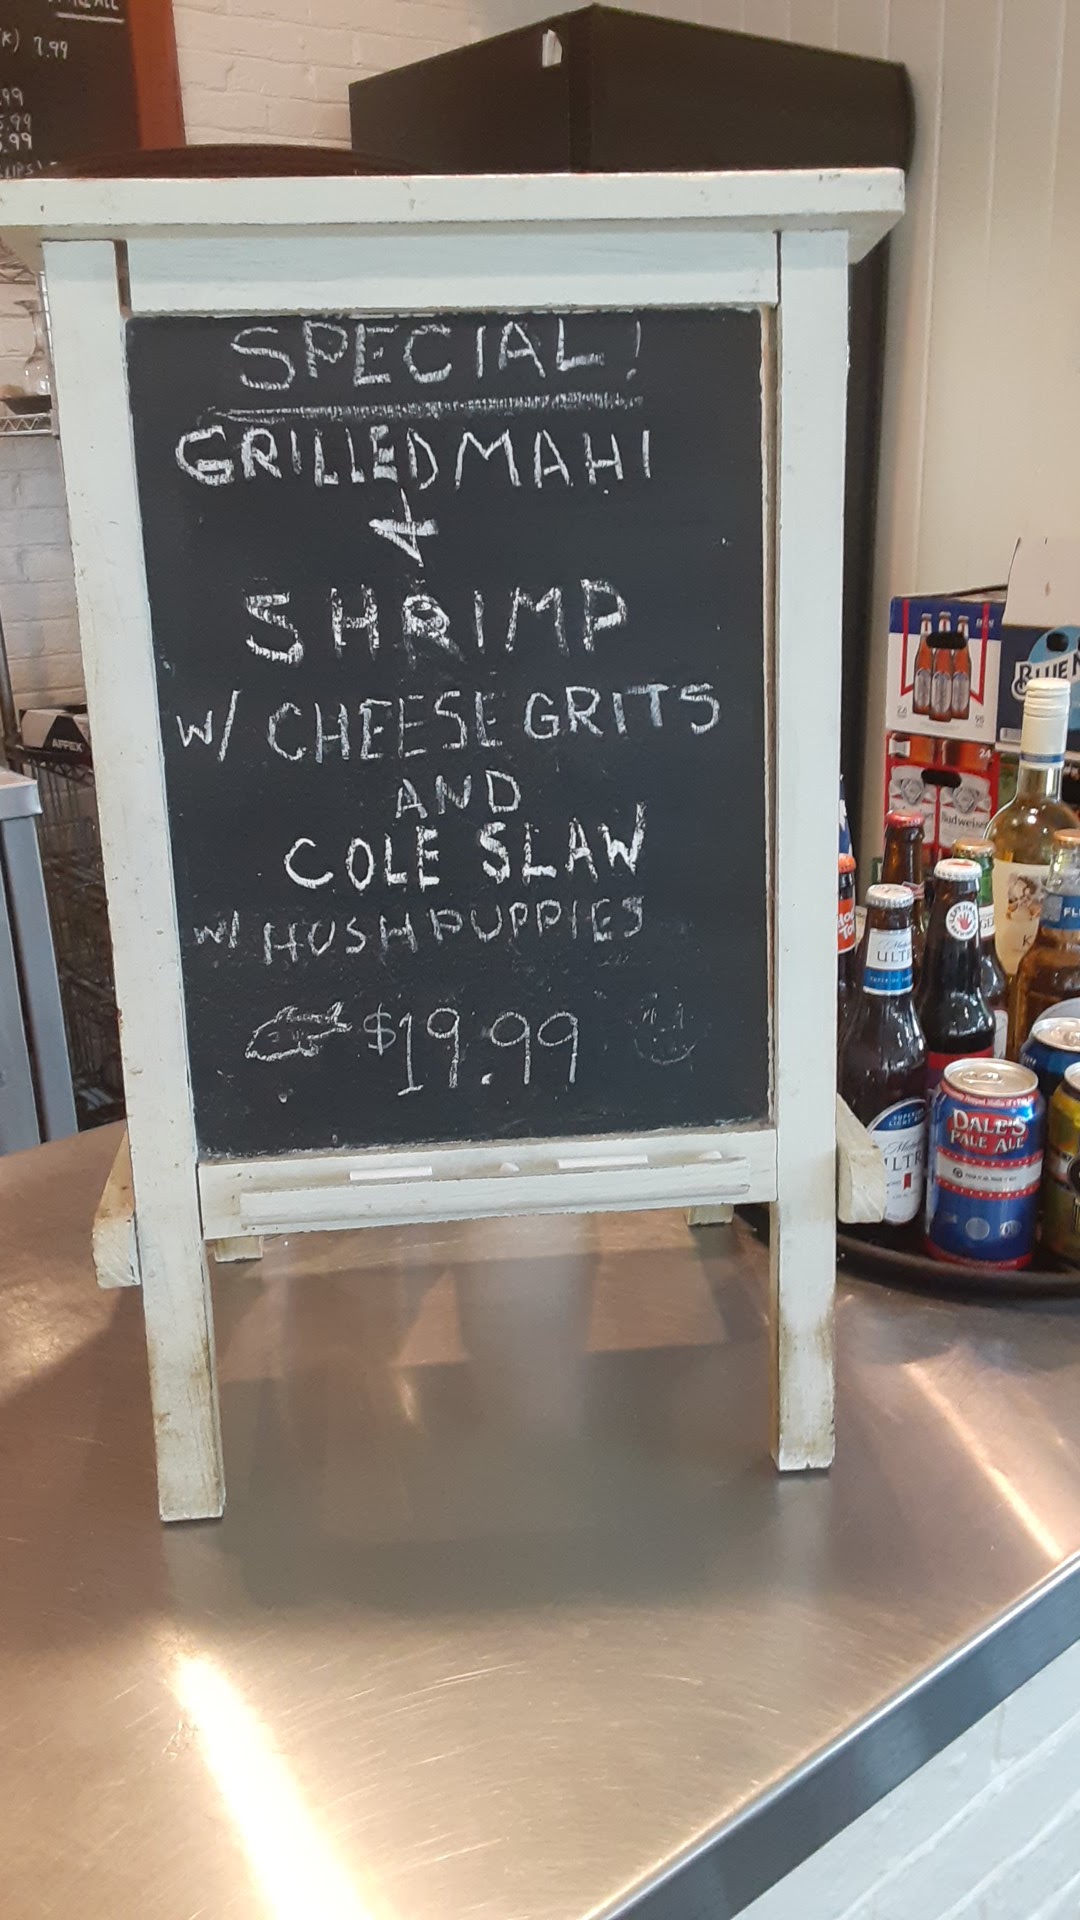 K) 7.99
.99
5.99
5.99
SPECIAL!
GRILLED MAHI
+
SHRIMP
W/ CHEESE GRITS
AND
COLE SLAW
W/ HUSHPUPPIES
$19.99
APPEX
24
Budweiser
BLUE
ULTRA
DALE'S
PALE ALE
ULTR